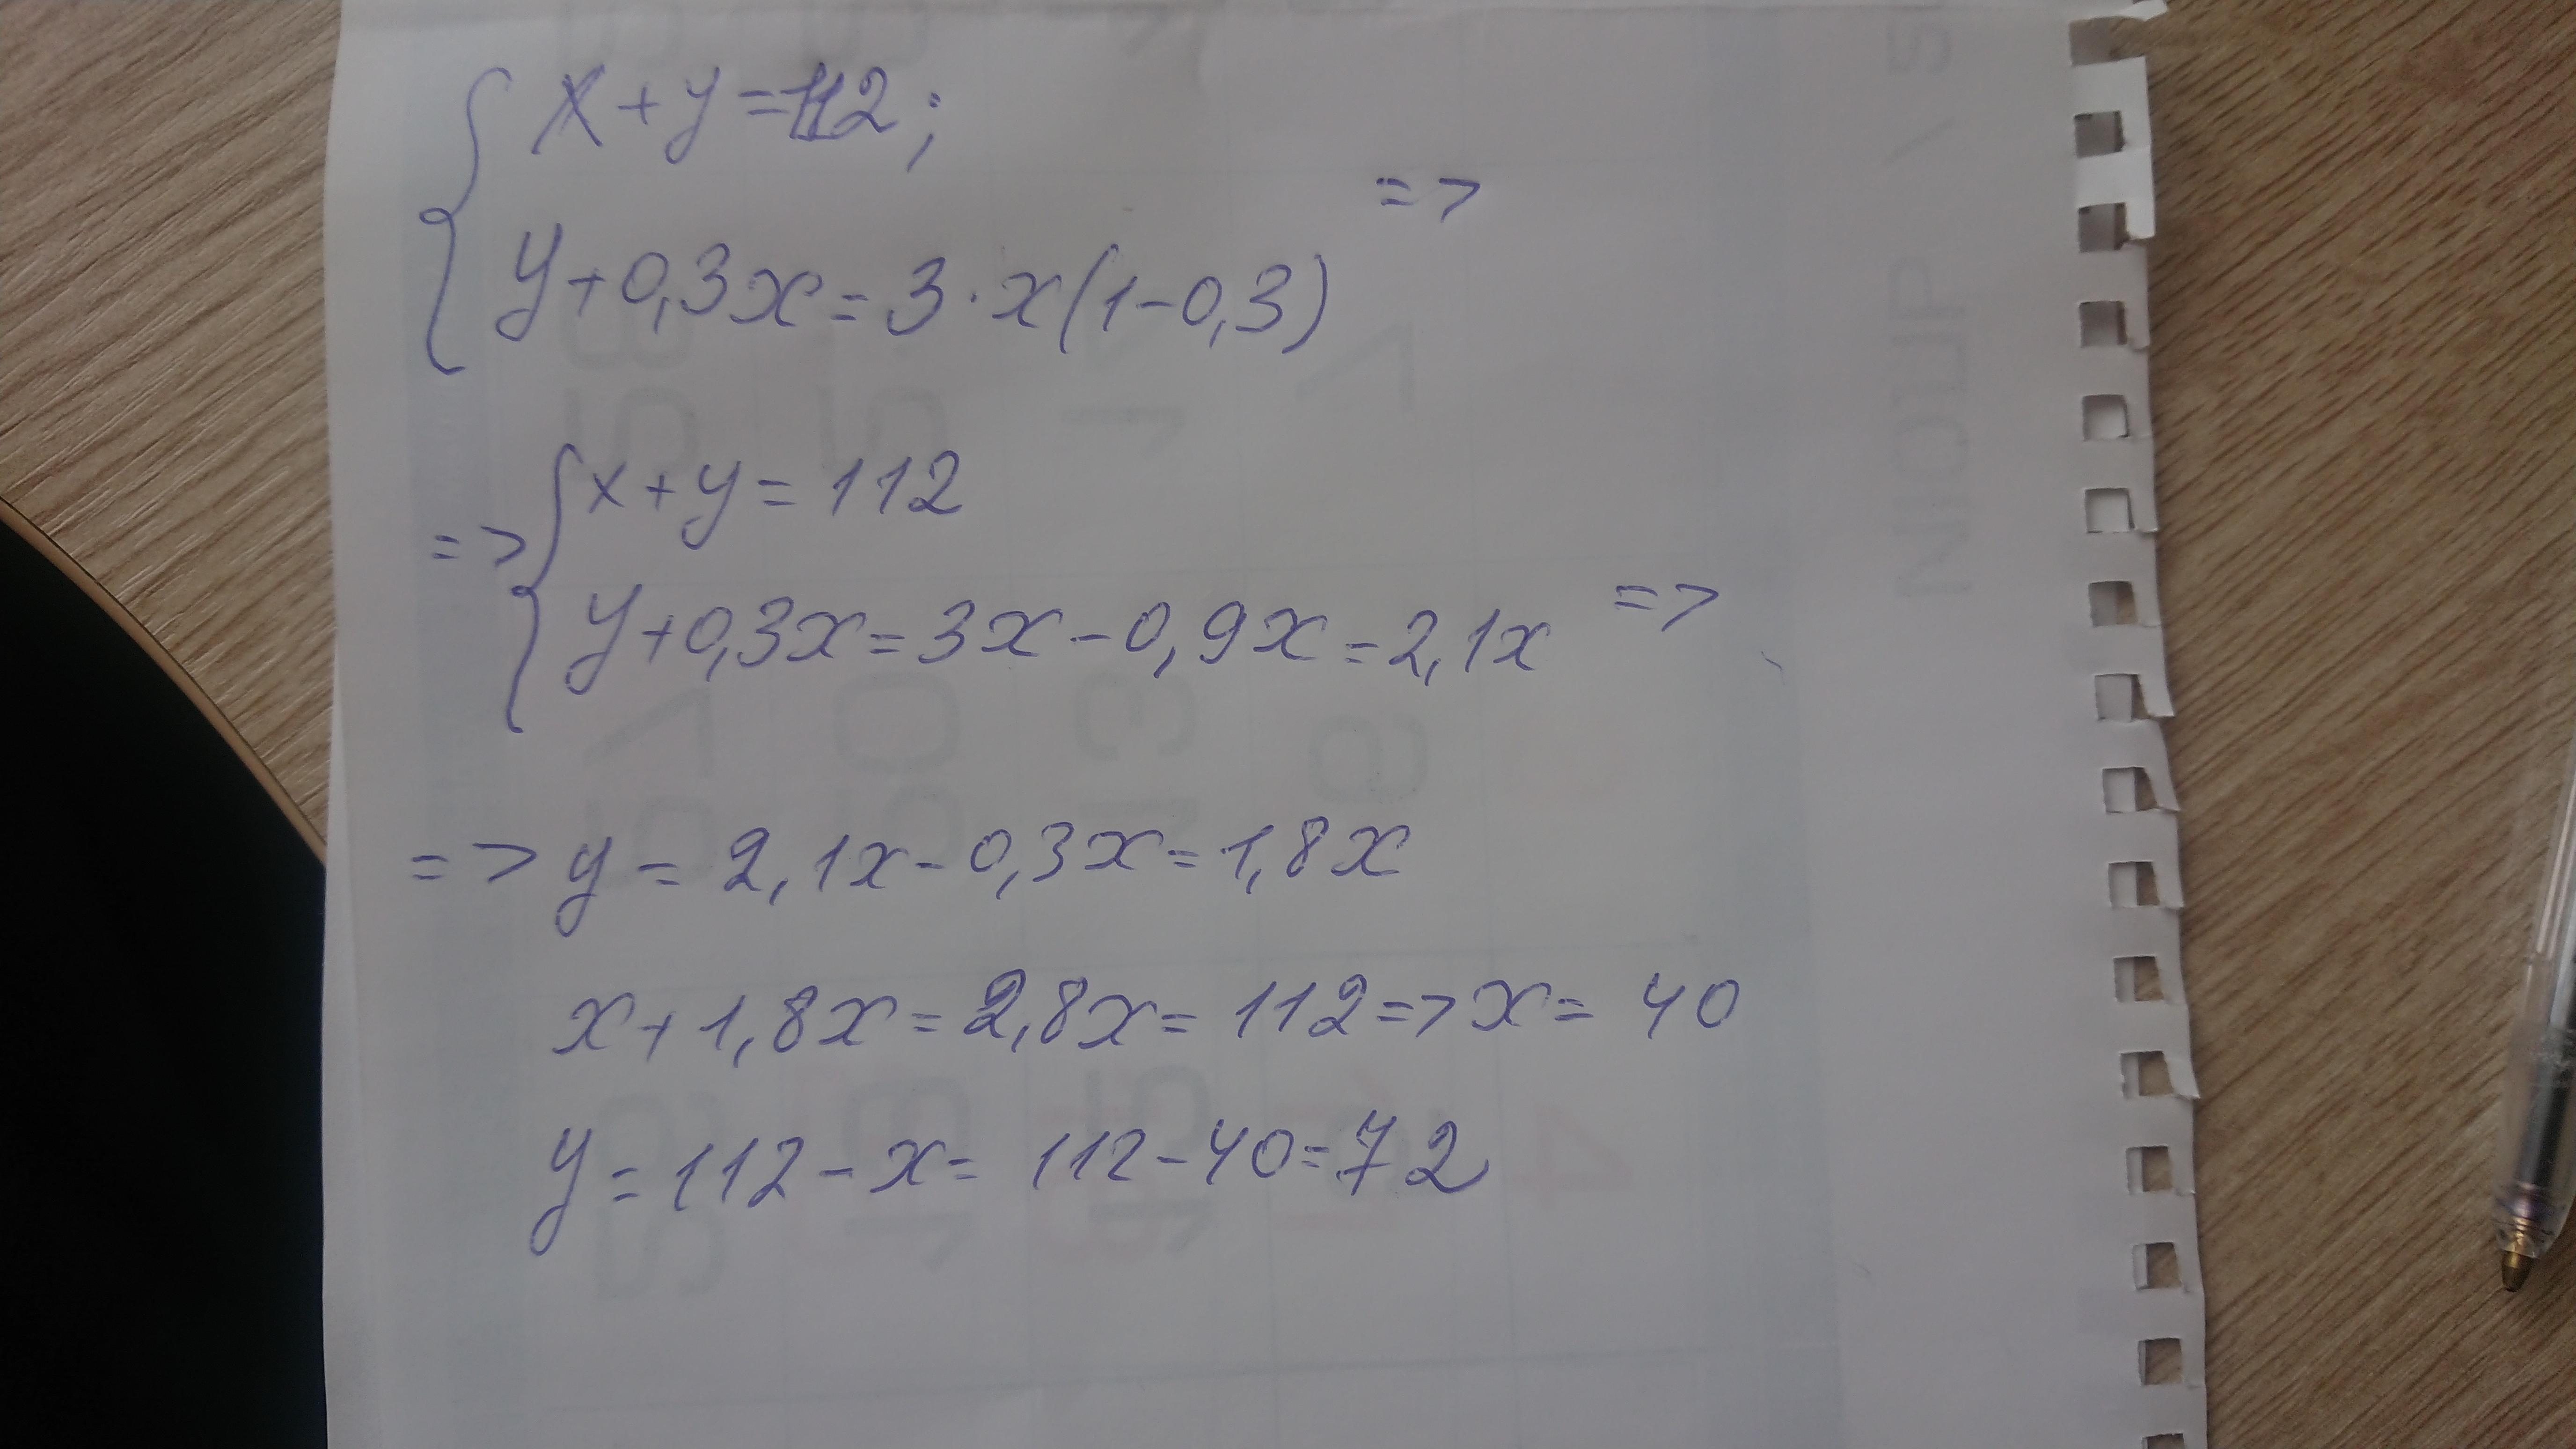 x+y=112;
y+0,3x=3·x(1-0,3) =>
=> x+y=112
y+0,3x=3x-0,9x=2,1x =>
=> y=2,1x-0,3x=1,8x
x+1,8x=2,8x=112=>x=40
y=112-x=112-40=72